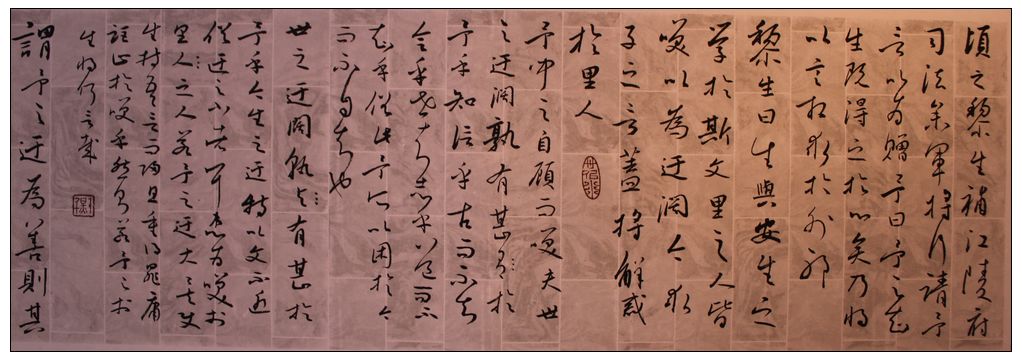 頃之黎生補江陵府
司法參軍將行請予
言以為贈予曰予之知
生既得之於心矣乃將
以言相求於外邪
黎生曰生與安生之
學於斯文里之人皆
笑以為迂闊今求
子之言蓋將解惑
於里人
予聞之自顧而笑夫世
之迂闊孰有甚於
予乎知信乎古而不知
合乎世知志乎道而不
知乎俗此予所以困於今
而不自知也
世之迂闊孰有甚於
予乎今生之迂特以文不近
俗迂之小者耳患為笑於
里人之人若予之迂大矣使
生持吾言而歸且重得罪庸
詎止於笑乎然則若予之於
生將何言哉
謂予之迂為善則其